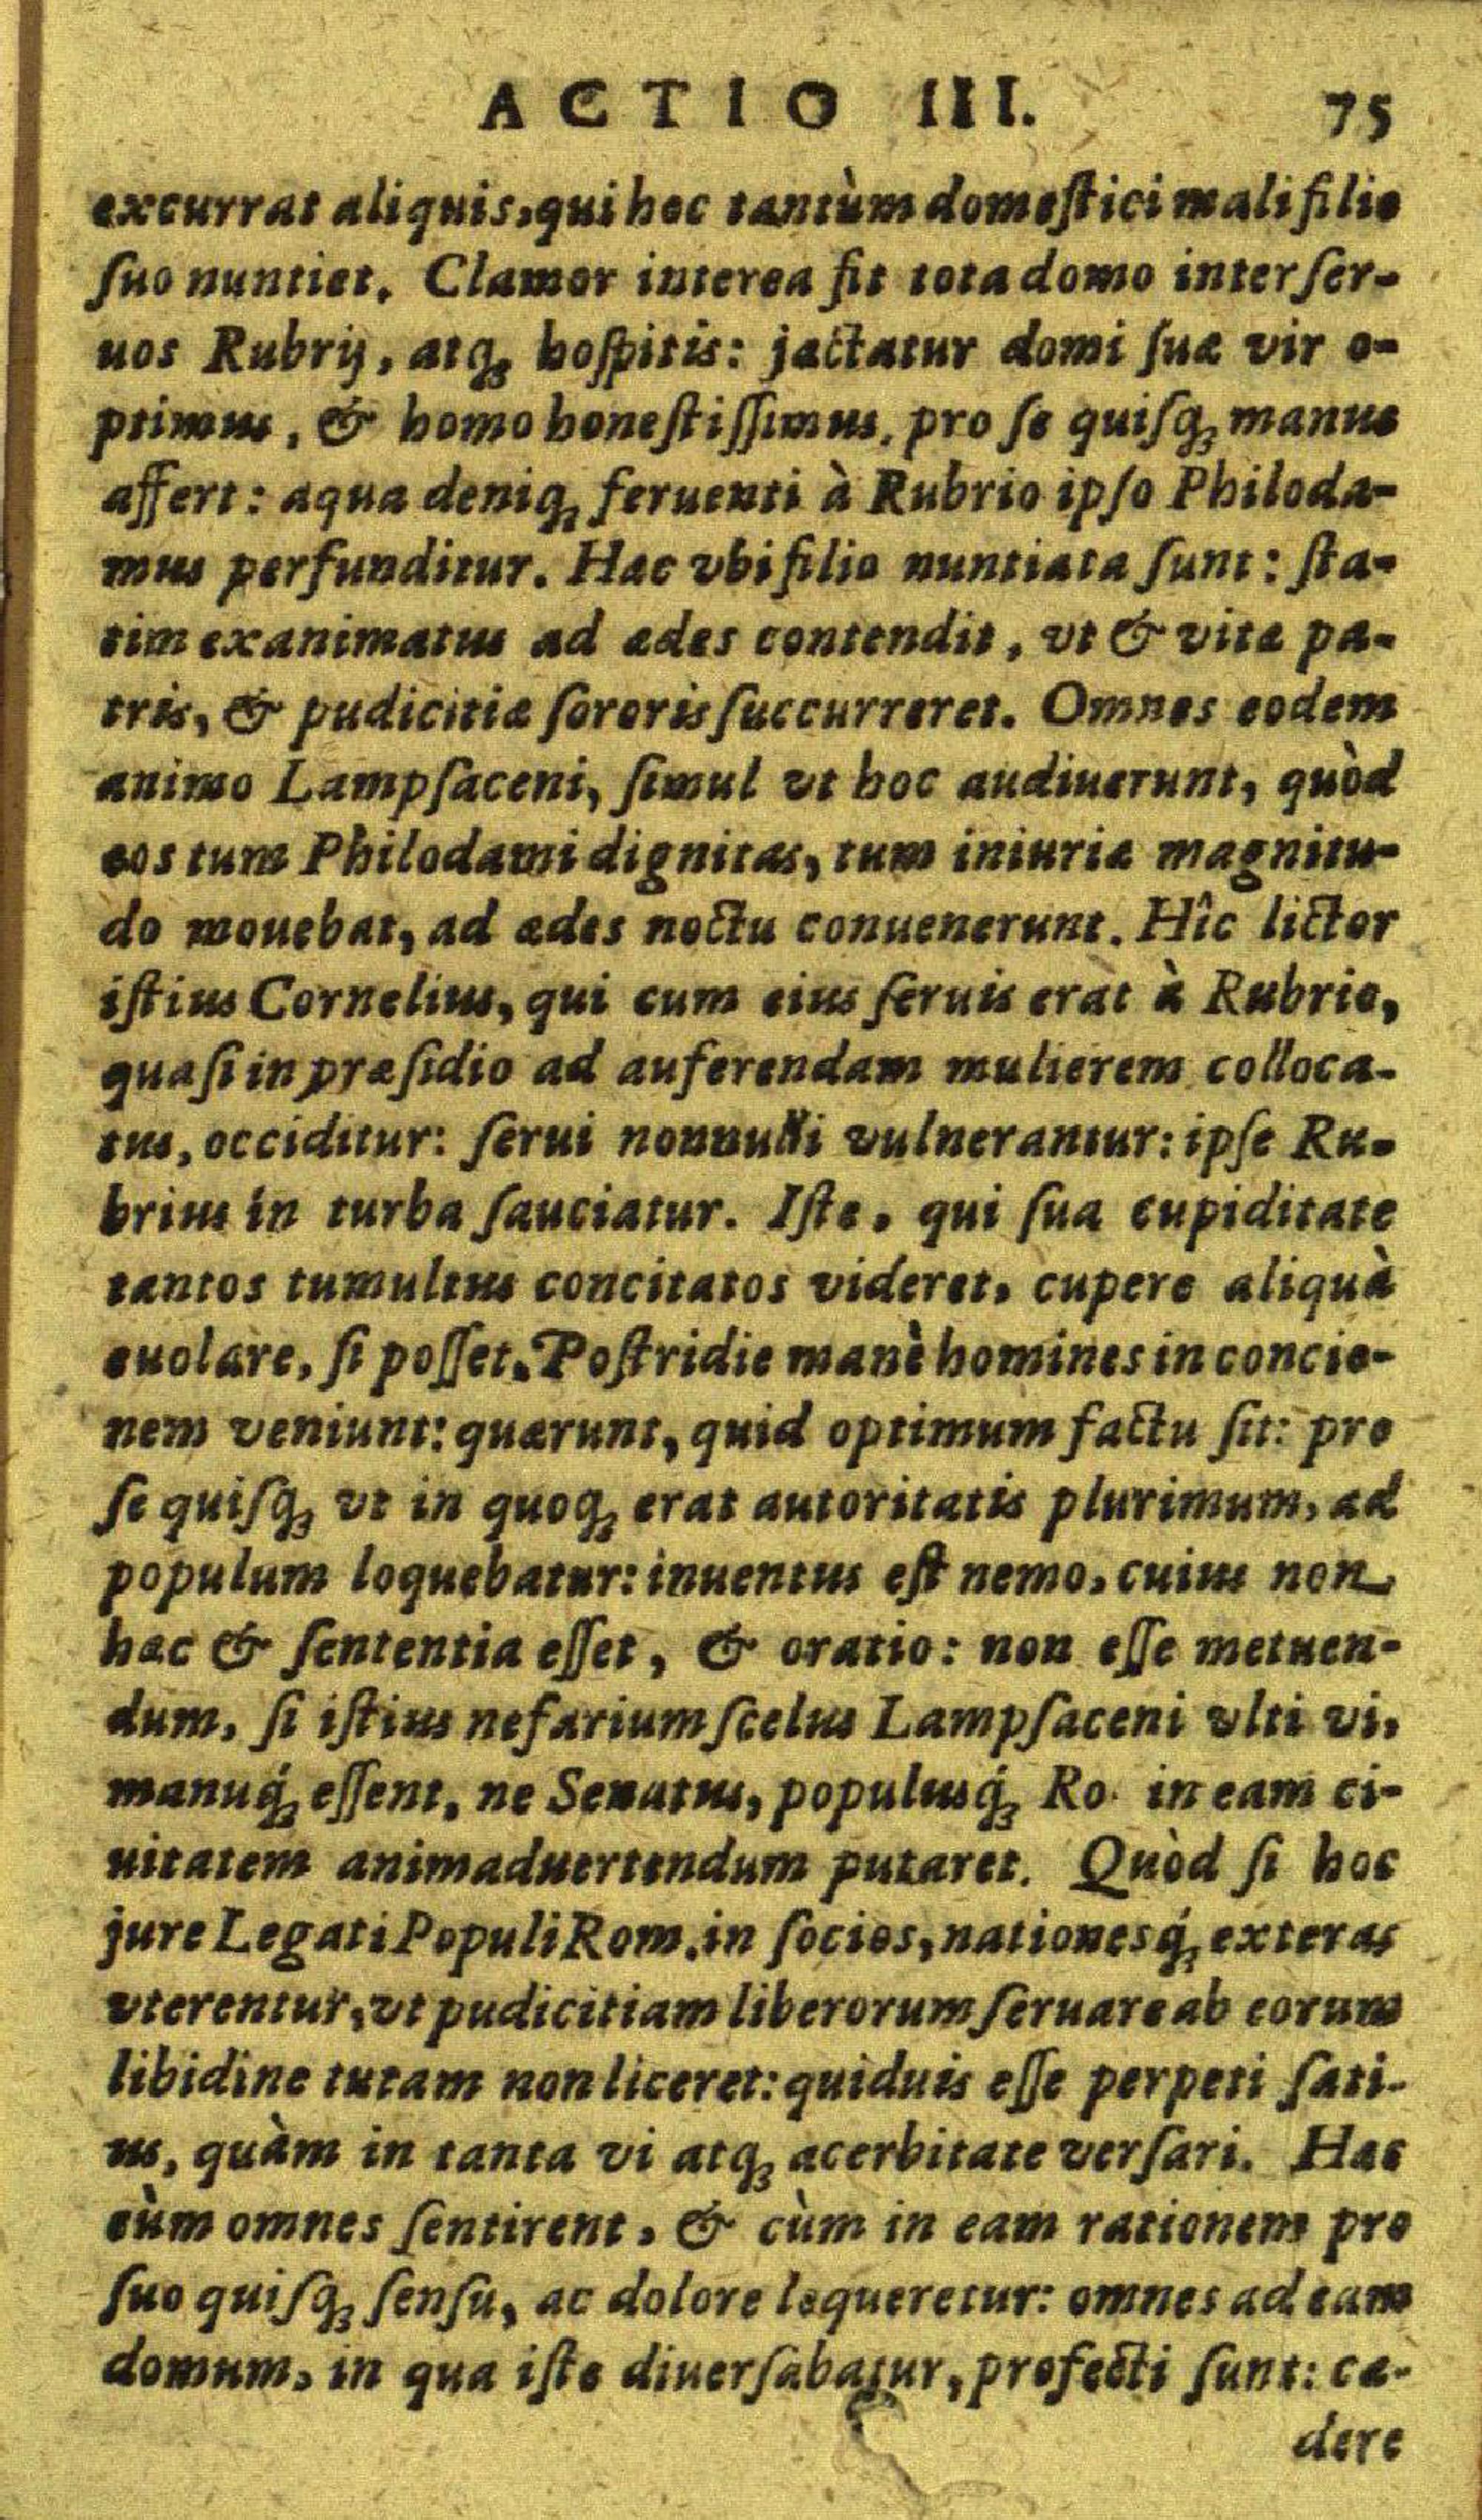 ACTIO III. 75
excurrat aliquis, qui hoc tantùm domeſtici mali filio
ſuo nuntiet. Clamor interea fit tota domo inter ſer-
uos Rubrij, atq; hoſpitis: jactatur domi ſuæ vir o-
ptimus, & homo honeſtiſſimus, pro ſe quiſq; manus
affert: aqua deniq; feruenti à Rubrio ipſo Philoda-
mus perfunditur. Hæc vbi filio nuntiata ſunt: ſta-
tim exanimatus ad ædes contendit, vt & vitæ pa-
tris, & pudicitiæ ſororis ſuccurreret. Omnes eodem
animo Lampſaceni, ſimul vt hoc audiuerunt, quòd
eos tum Philodami dignitas, tum iniuriæ magnitu-
do mouebat, ad ædes noctu conuenerunt. Hîc lictor
iſtius Cornelius, qui cum eius ſeruis erat à Rubrio,
quaſi in præſidio ad auferendam mulierem colloca-
tus, occiditur: ſerui nonnulli vulnerantur: ipſe Ru-
brius in turba ſauciatur. Iſte, qui ſua cupiditate
tantos tumultus concitatos videret, cupere aliquà
euolare, ſi poſſet. Poſtridie manè homines in concio-
nem veniunt: quærunt, quid optimum factu ſit: pro
ſe quiſq; vt in quoq; erat autoritatis plurimum, ad
populum loquebatur: inuentus eſt nemo, cuius non
hæc & ſententia eſſet, & oratio: non eſſe metuen-
dum, ſi iſtius nefarium ſcelus Lampſaceni vlti vi,
manuq́; eſſent, ne Senatus, populusq́; Ro. in eam ci-
uitatem animaduertendum putaret. Quòd ſi hoc
jure Legati Populi Rom. in ſocios, nationesq́; exteras
vterentur, vt pudicitiam liberorum ſeruare ab eorum
libidine tutam non liceret: quiduis eſſe perpeti ſati-
us, quàm in tanta vi atq; acerbitate verſari. Hæc
cùm omnes ſentirent, & cùm in eam rationem pro
ſuo quiſq; ſenſu, ac dolore loqueretur: omnes ad eam
domum, in qua iſte diuerſabatur, profecti ſunt: cæ-
dere